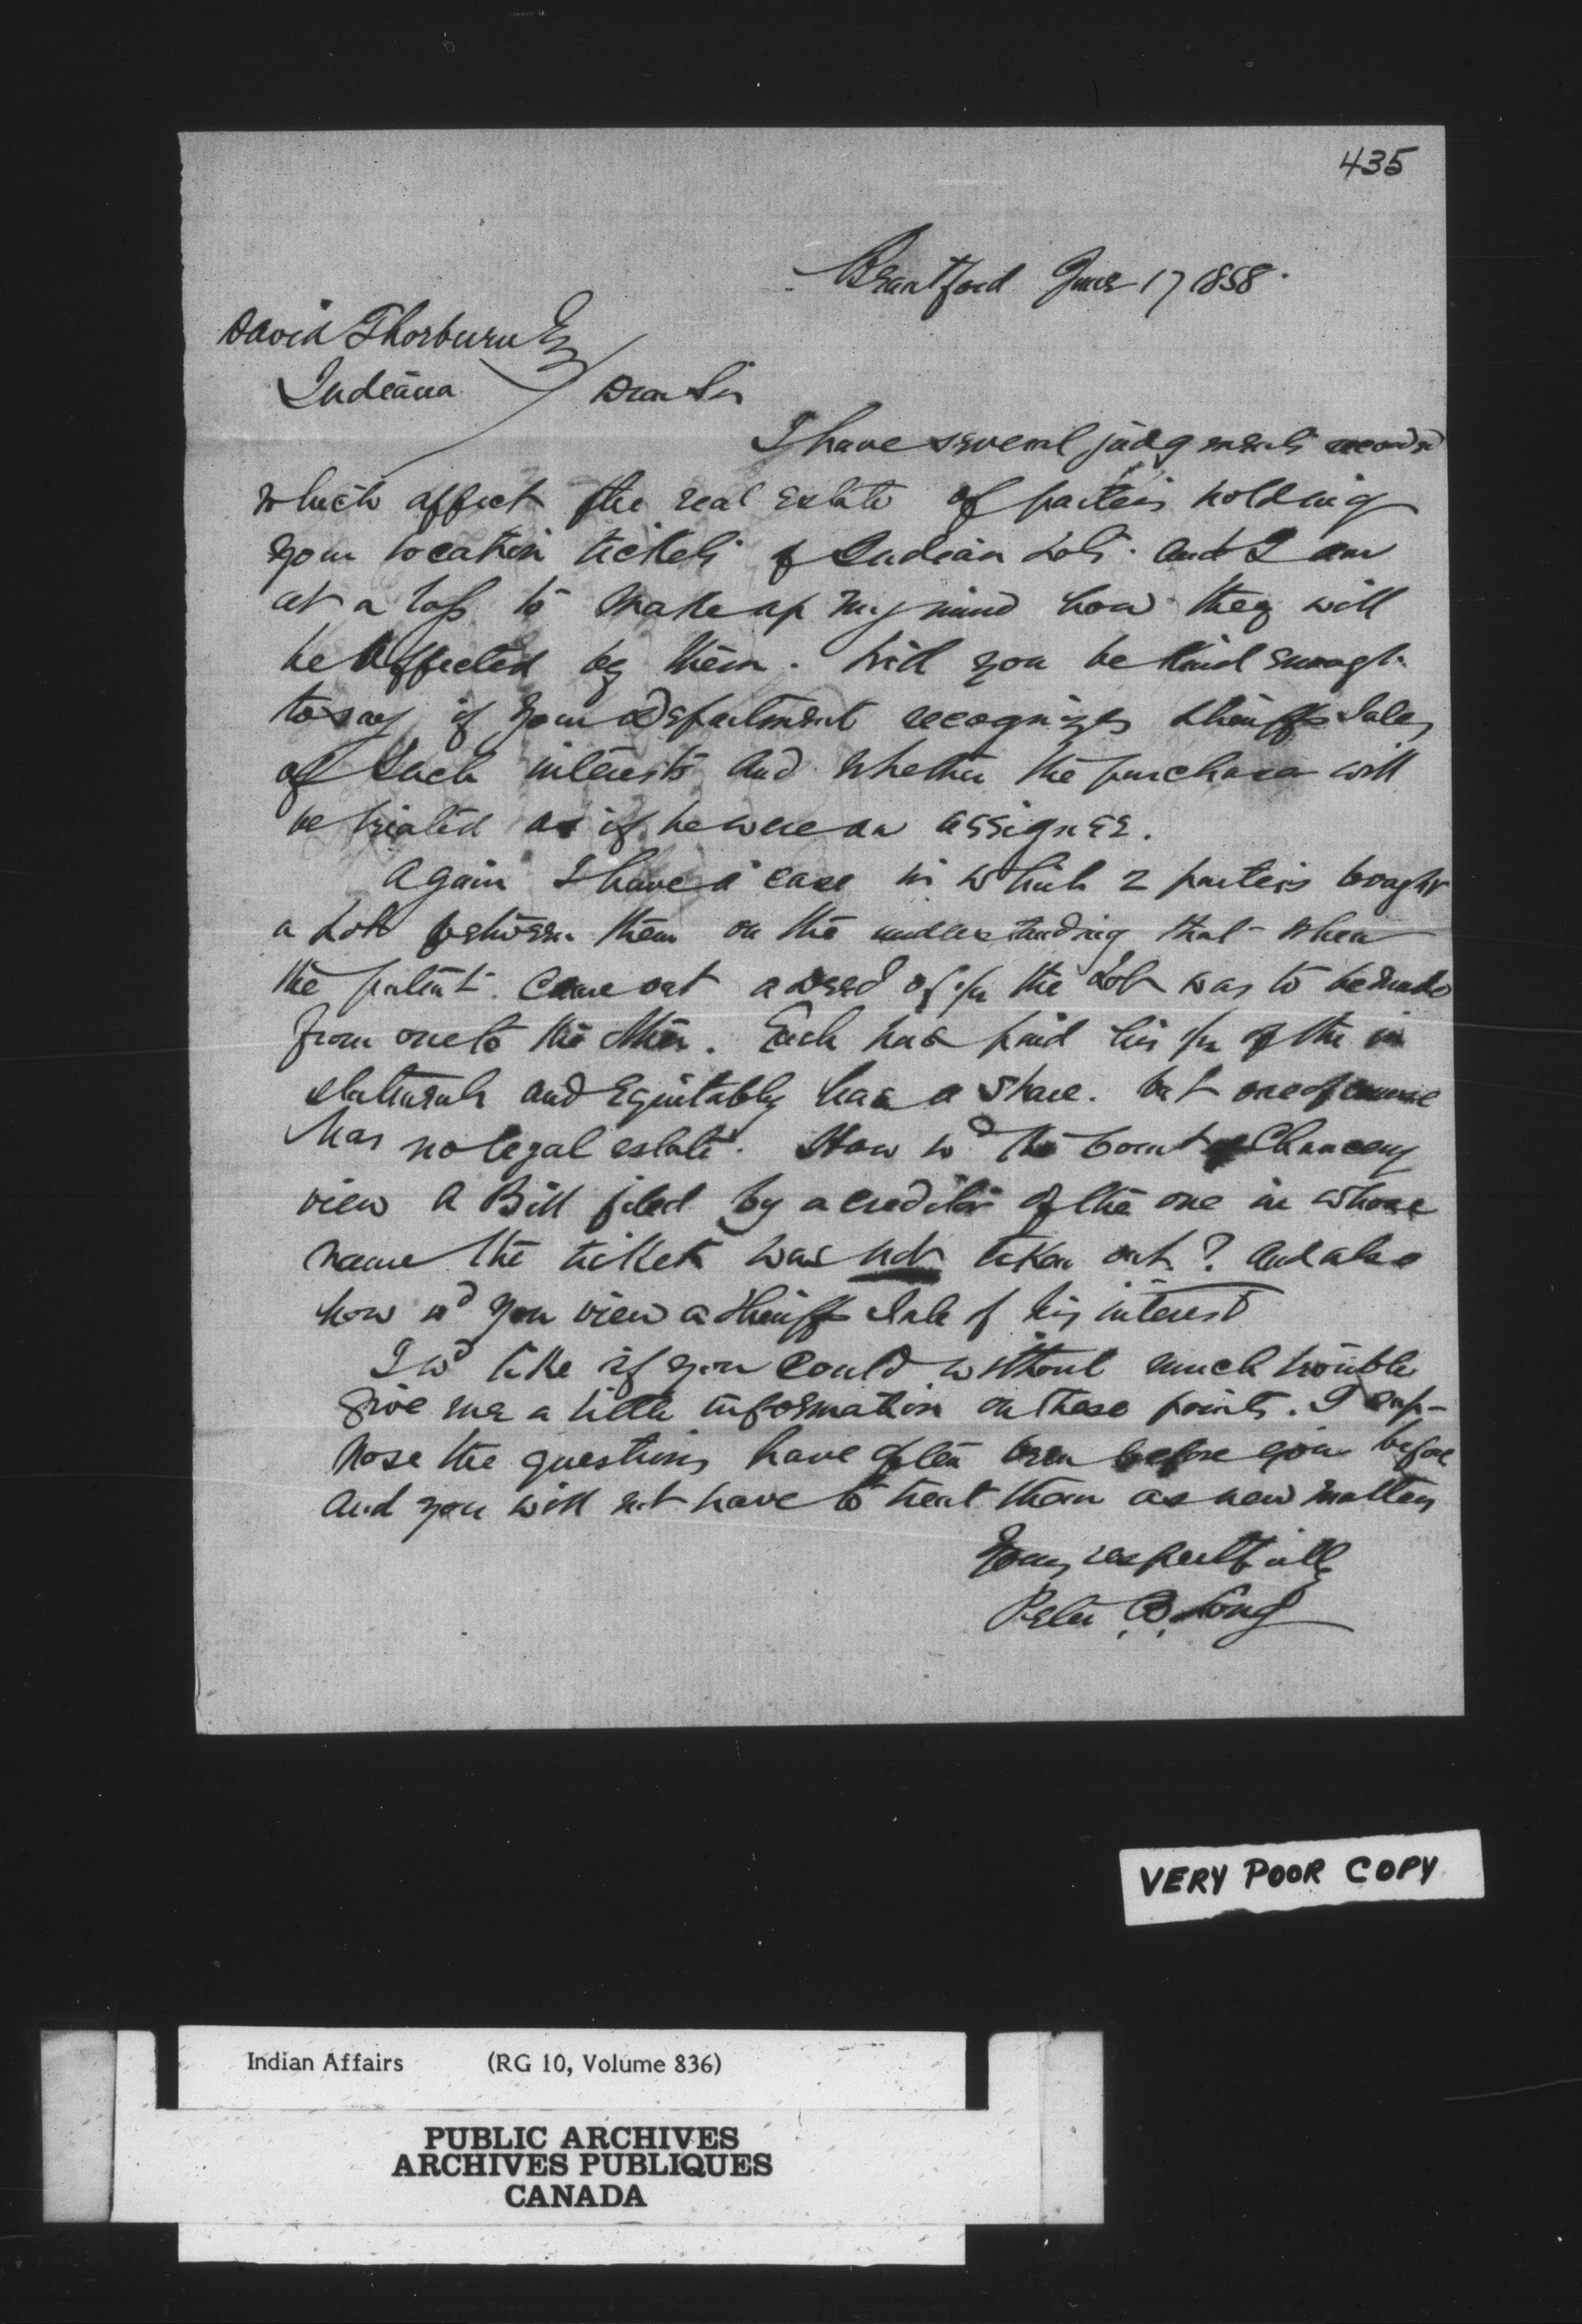 435
Brantford June 17 1858.
David Thorburn Esq
Indiana Dear Sir
I have several judgments recorded
which affect the real estate of parties holding
your location tickets of Indian Lots. and I am
at a loss to make up my mind how they will
be affected by them. Will you be kind enough
to say if your department recognizes Sheriffs Sales
of such interests and whether the purchaser will
be treated as if he were an assignee.
Again I have a case in which 2 parties bought
a Lot between them on the understanding that when
the patent came out a deed of 1/2 the Lot was to be made
from one to the other. Each has paid his 1/2 of the in
stalments and Equitably has a share. but one of course
has no legal estate. How wd the Court of Chancery
view a Bill filed by a creditor of the one in whose
name the ticket was not taken out? And also
how wd you view a Sheriffs Sale of his interest
I wd like if you could without much trouble
give me a little information on these points. I sup-
pose the questions have often been before you before
and you will not have to treat them as new matters
Yours respectfully
Peter B. Long
VERY POOR COPY
Indian Affairs (RG 10, Volume 836)
PUBLIC ARCHIVES
ARCHIVES PUBLIQUES
CANADA